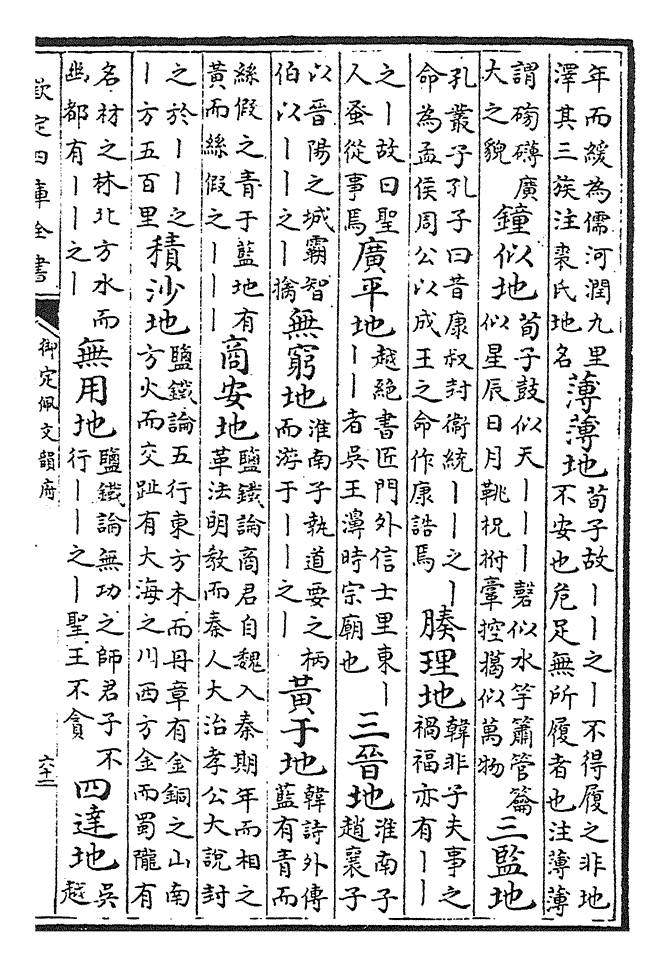 年而緩為儒河潤九里澤其三族注裘氏地名薄薄地荀子故｜｜之｜不得履之非地不安也危足無所履者也注薄薄
謂磅礴廣大之貌鐘似地荀子鼓似天｜｜｜磬似水竽簫管籥似星辰日月鞉柷拊鞷控揭似萬物三監地
孔叢子孔子曰昔康叔封衛統｜｜之｜命為孟侯周公以成王之命作康誥焉腠理地韓非子夫事之禍福亦有｜｜
之｜故曰聖人蚤從事焉廣平地越絕書匠門外信士里東｜｜｜者吳王濞時宗廟也三晉地淮南子趙襄子
以晉陽之城霸智伯以｜｜之｜擒無窮地淮南子執道要之柄而游于｜｜之｜黃于地韓詩外傳藍有青而
絲假之青于藍地有黃而絲假之｜｜｜商安地鹽鐵論商君自魏入秦期年而相之革法明教而秦人大治孝公大說封
之於｜｜之｜方五百里積沙地鹽鐵論五行東方木而丹章有金銅之山南方火而交趾有大海之川西方金而蜀隴有
名材之林北方水而幽都有｜｜之｜無用地鹽鐵論無功之師君子不行｜｜之｜聖王不貪四達地吳越
欽定四庫全書
御定佩文韻府
六十二